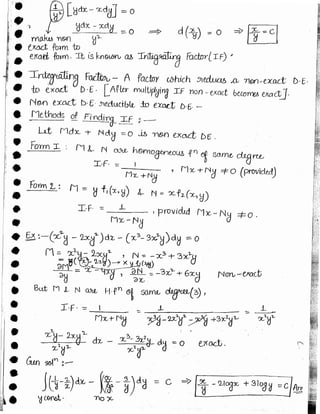 1/y² [ydx - xdy] = 0
ydx - xdy / y² = 0 ⇒ d(x/y) = 0 ⇒ x/y = C
makes non exact form to exact form. It is known as Integrating Factor (IF)
Integrating Factor - A factor which reduces a non-exact D.E.
to exact D.E. [After multiplying IF non-exact becomes exact].
Non exact D.E. reductible to exact D.E. -
Methods of Finding IF :-
Let Mdx + Ndy = 0 is non exact DE.
Form I : M & N are homogeneous fⁿ of same degree
I.F. = 1/Mx + Ny , Mx + Ny ≠ 0 (provided)
Form 2: M = y f₁(x,y) & N = x f₂(x,y)
I.F. = 1/Mx - Ny , provided Mx - Ny ≠ 0.
Ex:- (x²y - 2xy²)dx - (x³ - 3x²y)dy = 0
M = x²y - 2xy² , N = -x³ + 3x²y
∂M/∂y = x² - 4xy , ∂N/∂x = -3x² + 6xy Non-exact
But M & N are H fⁿ of same degree(3),
I.F. = 1/Mx + Ny = 1/x³y - 2x²y² - x³y + 3x²y² = 1/x²y²
x²y - 2xy²/x²y² dx - x³ - 3x²y/x²y² dy = 0 exact.
Gen solⁿ :-
∫(1/y - 2/x)dx - ∫(x/y² - 3/y)dy = C ⇒ x/y - 2logx + 3logy = C Ans
y const. no x